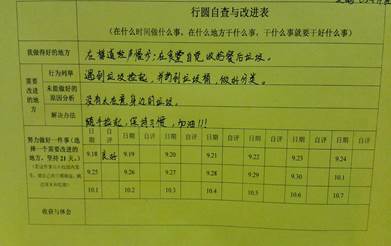 行圆自查与改进表
(在什么时间做什么事，在什么地方干什么事，干什么事就要干好什么事)
我做得好的地方
在食堂自觉收拾餐后垃圾。
需要改进的地方
行为列举
遇到垃圾捡起，并扔到垃圾桶，做好分类。
未能做好的原因分析
没有太在意身边的垃圾。
解决办法
随手捡起，保持习惯，加油!!!
努力做好一件事(选择一个需要改进的地方，坚持21天。)
日期 自评 日期 自评 日期 自评 日期 自评 日期 自评 日期 自评 日期 自评
9.18 良好 9.19 9.20 9.21 9.22 9.23 9.24
9.25 9.26 9.27 9.28 9.29 9.30 10.1
10.1 10.2 10.3 10.4 10.5 10.6 10.7
收获与体会